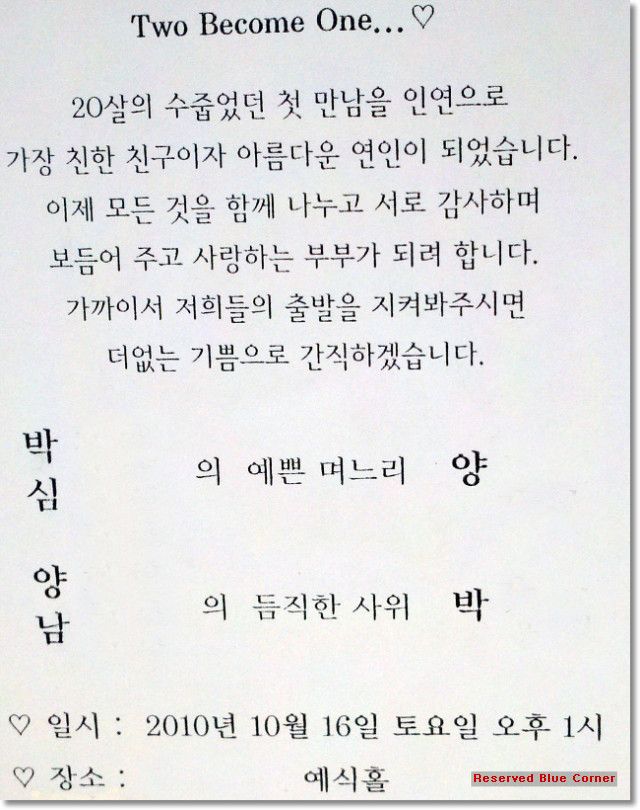 Two Become One...♡
20살의 수줍었던 첫 만남을 인연으로
가장 친한 친구이자 아름다운 연인이 되었습니다.
이제 모든 것을 함께 나누고 서로 감사하며
보듬어 주고 사랑하는 부부가 되려 합니다.
가까이서 저희들의 출발을 지켜봐주시면
더없는 기쁨으로 간직하겠습니다.
박
심
의 예쁜 며느리 양
양
남
의 듬직한 사위 박
♡ 일시 : 2010년 10월 16일 토요일 오후 1시
♡ 장소 : 예식홀
Reserved Blue Corner